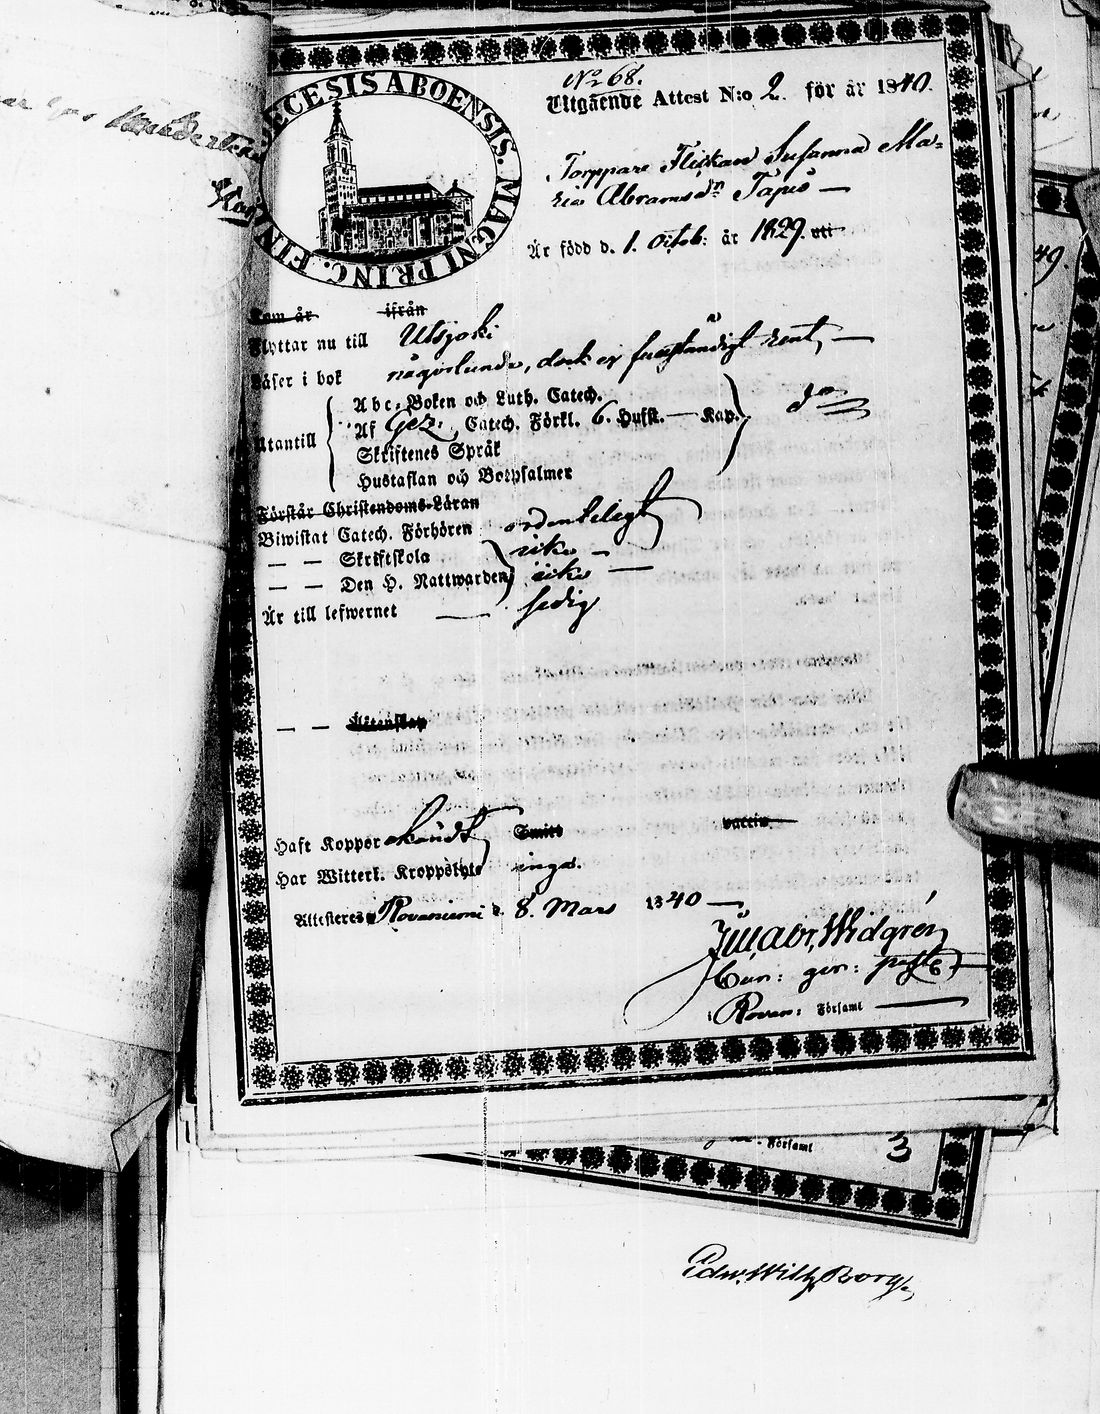 DIOECESIS ABOENSIS. MAGNI PRINC. FINL.
No 68.
Utgående Attest N:o 2. för år 1840.
Torppare Flickan Susanna Ma-
ria Abramsdr Tapio —
Är född d. 1. Octob: år 1829. uti
Kom år ifrån
Flyttar nu till Utsjoki
Läser i bok någorlunda, dock ej fullständigt rent, —
Abc-Boken och Luth. Catech.
Utantill Af Gez. Catech. Förkl. 6. Hufst. — Kap. do
Skriftenes Språk
Hustaflan och Botpsalmer
Förstår Christendoms-Läran
Biwistat Catech. Förhören ordenteligt
— — Skriftskola icke —
— — Den H. Nattwarden icke —
Är till lefwernet — sedig
— — Äktenskap
Haft Koppor skÿdt Smitt vaccin
Har Witterl. Kroppslyte inga.
Attesteres Rovaniemi d. 8. Mars 1840 —
Widgrén
i Rovan: Församl
Församl 3
Edw. Wilh. Borg
49.